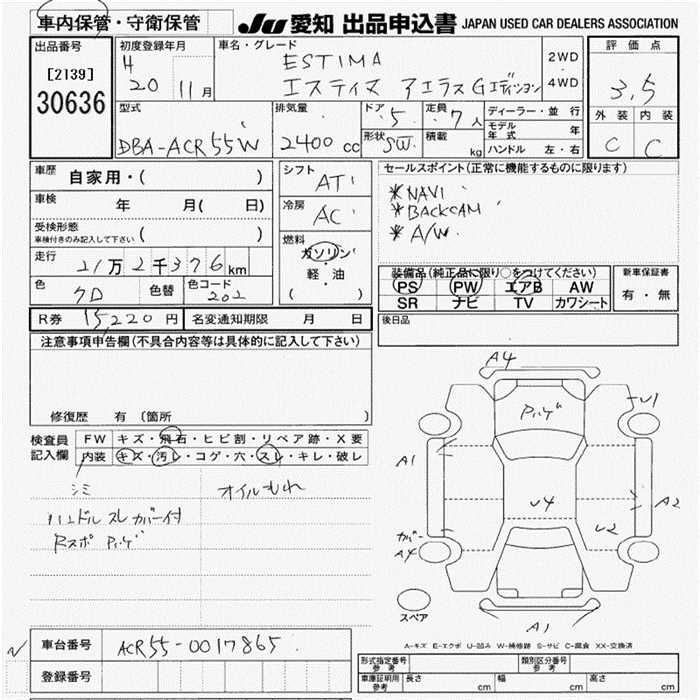 車内保管・守衛保管 JU 愛知 出品申込書 JAPAN USED CAR DEALERS ASSOCIATION
出品番号 初度登録年月 車名・グレード 評価点
[2139] H ESTIMA 2WD
30636 20 11月 エスティマ アエラスGエディション 4WD 3.5
型式 排気量 ドア 5 定員 7人 ディーラー・並行 外装 内装
DBA-ACR55W 2400cc 形状 SW 積載 kg モデル年式 年 C C
ハンドル 左・右
車歴 自家用・( ) シフト AT セールスポイント(正常に機能するものに限ります)
車検 年 月( 日) 冷房 AC *NAVI
受検形態 *BACKCAM
車検付きのみ記入して下さい ( ) *A/W
走行 21万2千376km 燃料 ガソリン・軽・油
( )
装備品(純正品に限り○をつけてください) 新車保証書
色 クロ 色替 色コード 202 PS PW エアB AW 有・無
SR ナビ TV カワシート
R券 15,220円 名変通知期限 月 日 後日品
注意事項申告欄(不具合内容等は具体的に記入して下さい)
修復歴 有(箇所 )
検査員記入欄 FW キズ・飛石・ヒビ割・リペア跡・X要
内装 キズ・汚レ・コゲ・穴・スレ・キレ・破レ
シミ オイルもれ
ハンドルスレ カバー付
Rスポ ハゲ
A4
ハゲ U1
A1
U4 A2
カバー U2
A4
スペア
A1
A-キズ E-エクボ U-凹み W-補修跡 S-サビ C-腐食 XX-交換済
車台番号 ACR55-0017865
登録番号
形式指定番号 参考 類別区分番号 参考
車庫証明用 参考 長さ cm 幅 cm 高さ cm